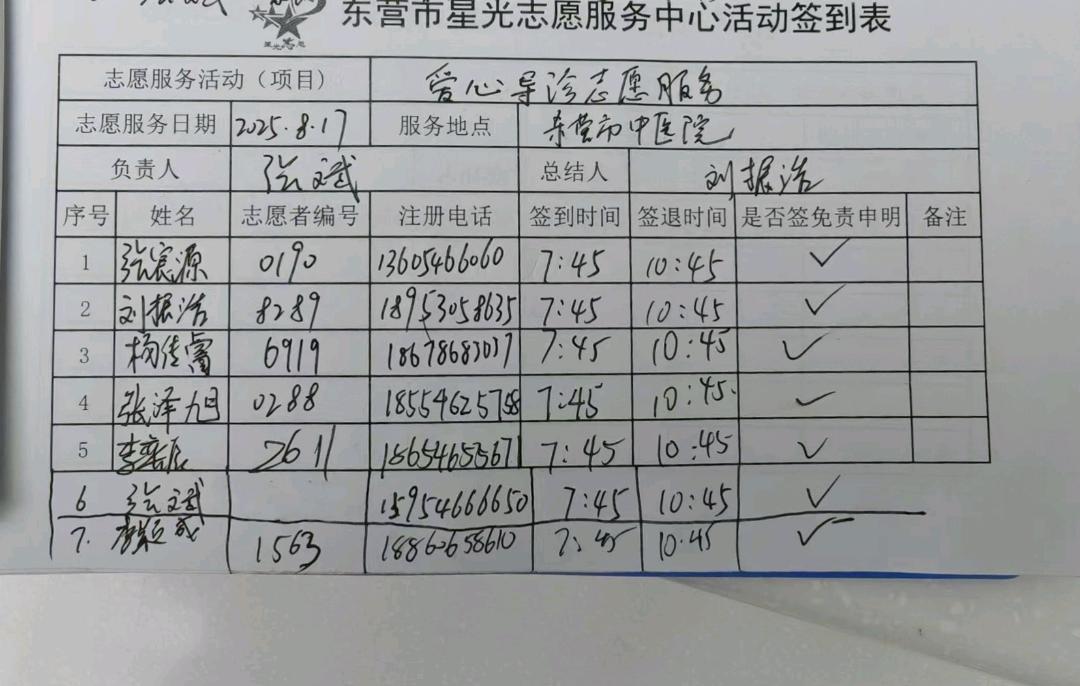 东营市星光志愿服务中心活动签到表
志愿服务活动（项目） 爱心导诊志愿服务
志愿服务日期 2025.8.17 服务地点 东营市中医院
负责人 张文斌 总结人 刘振浩
序号 姓名 志愿者编号 注册电话 签到时间 签退时间 是否签免责申明 备注
1 张宸源 0190 13605466060 7:45 10:45 ✓
2 刘振浩 8289 18953058635 7:45 10:45 ✓
3 杨佳睿 6919 18678683037 7:45 10:45 ✓
4 张泽旭 0288 18554625758 7:45 10:45. ✓
5 李奕辰 2611 18654655671 7:45 10:45 ✓
6 张文斌 15954666650 7:45 10:45 ✓
7. 1563 18860658610 7:45 10.45 ✓